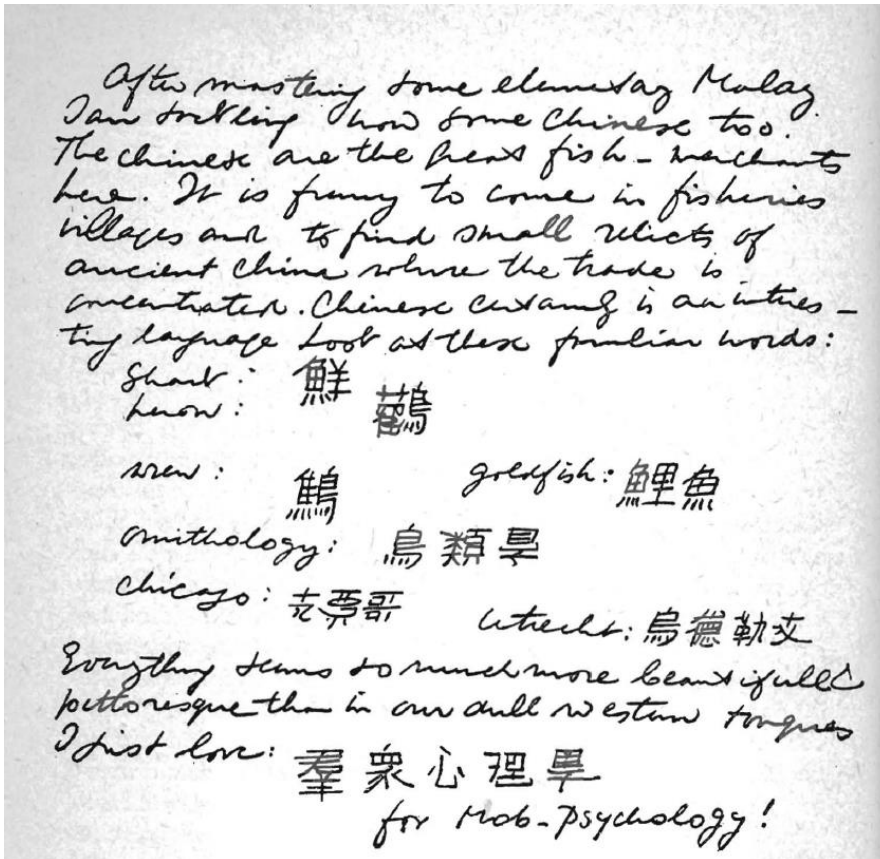 After mastering some elementary Malay
I am tackling now some Chinese too.
The chinese are the great fish-merchants
here. It is funny to come in fisheries
villages and to find small relicts of
ancient China where the trade is
concentrated. Chinese certainly is an interes-
ting language Look at these familiar words:
Shark: 鮮
heron: 鸛
wren: goldfish: 鯉魚
ornithology: 鳥類學
chicago: 票哥 Utrecht: 烏德勒支
Everything seems so much more beautifull &
pittoresque than in our dull western tongues
I just love: 羣衆心理學
for Mob-Psychology!